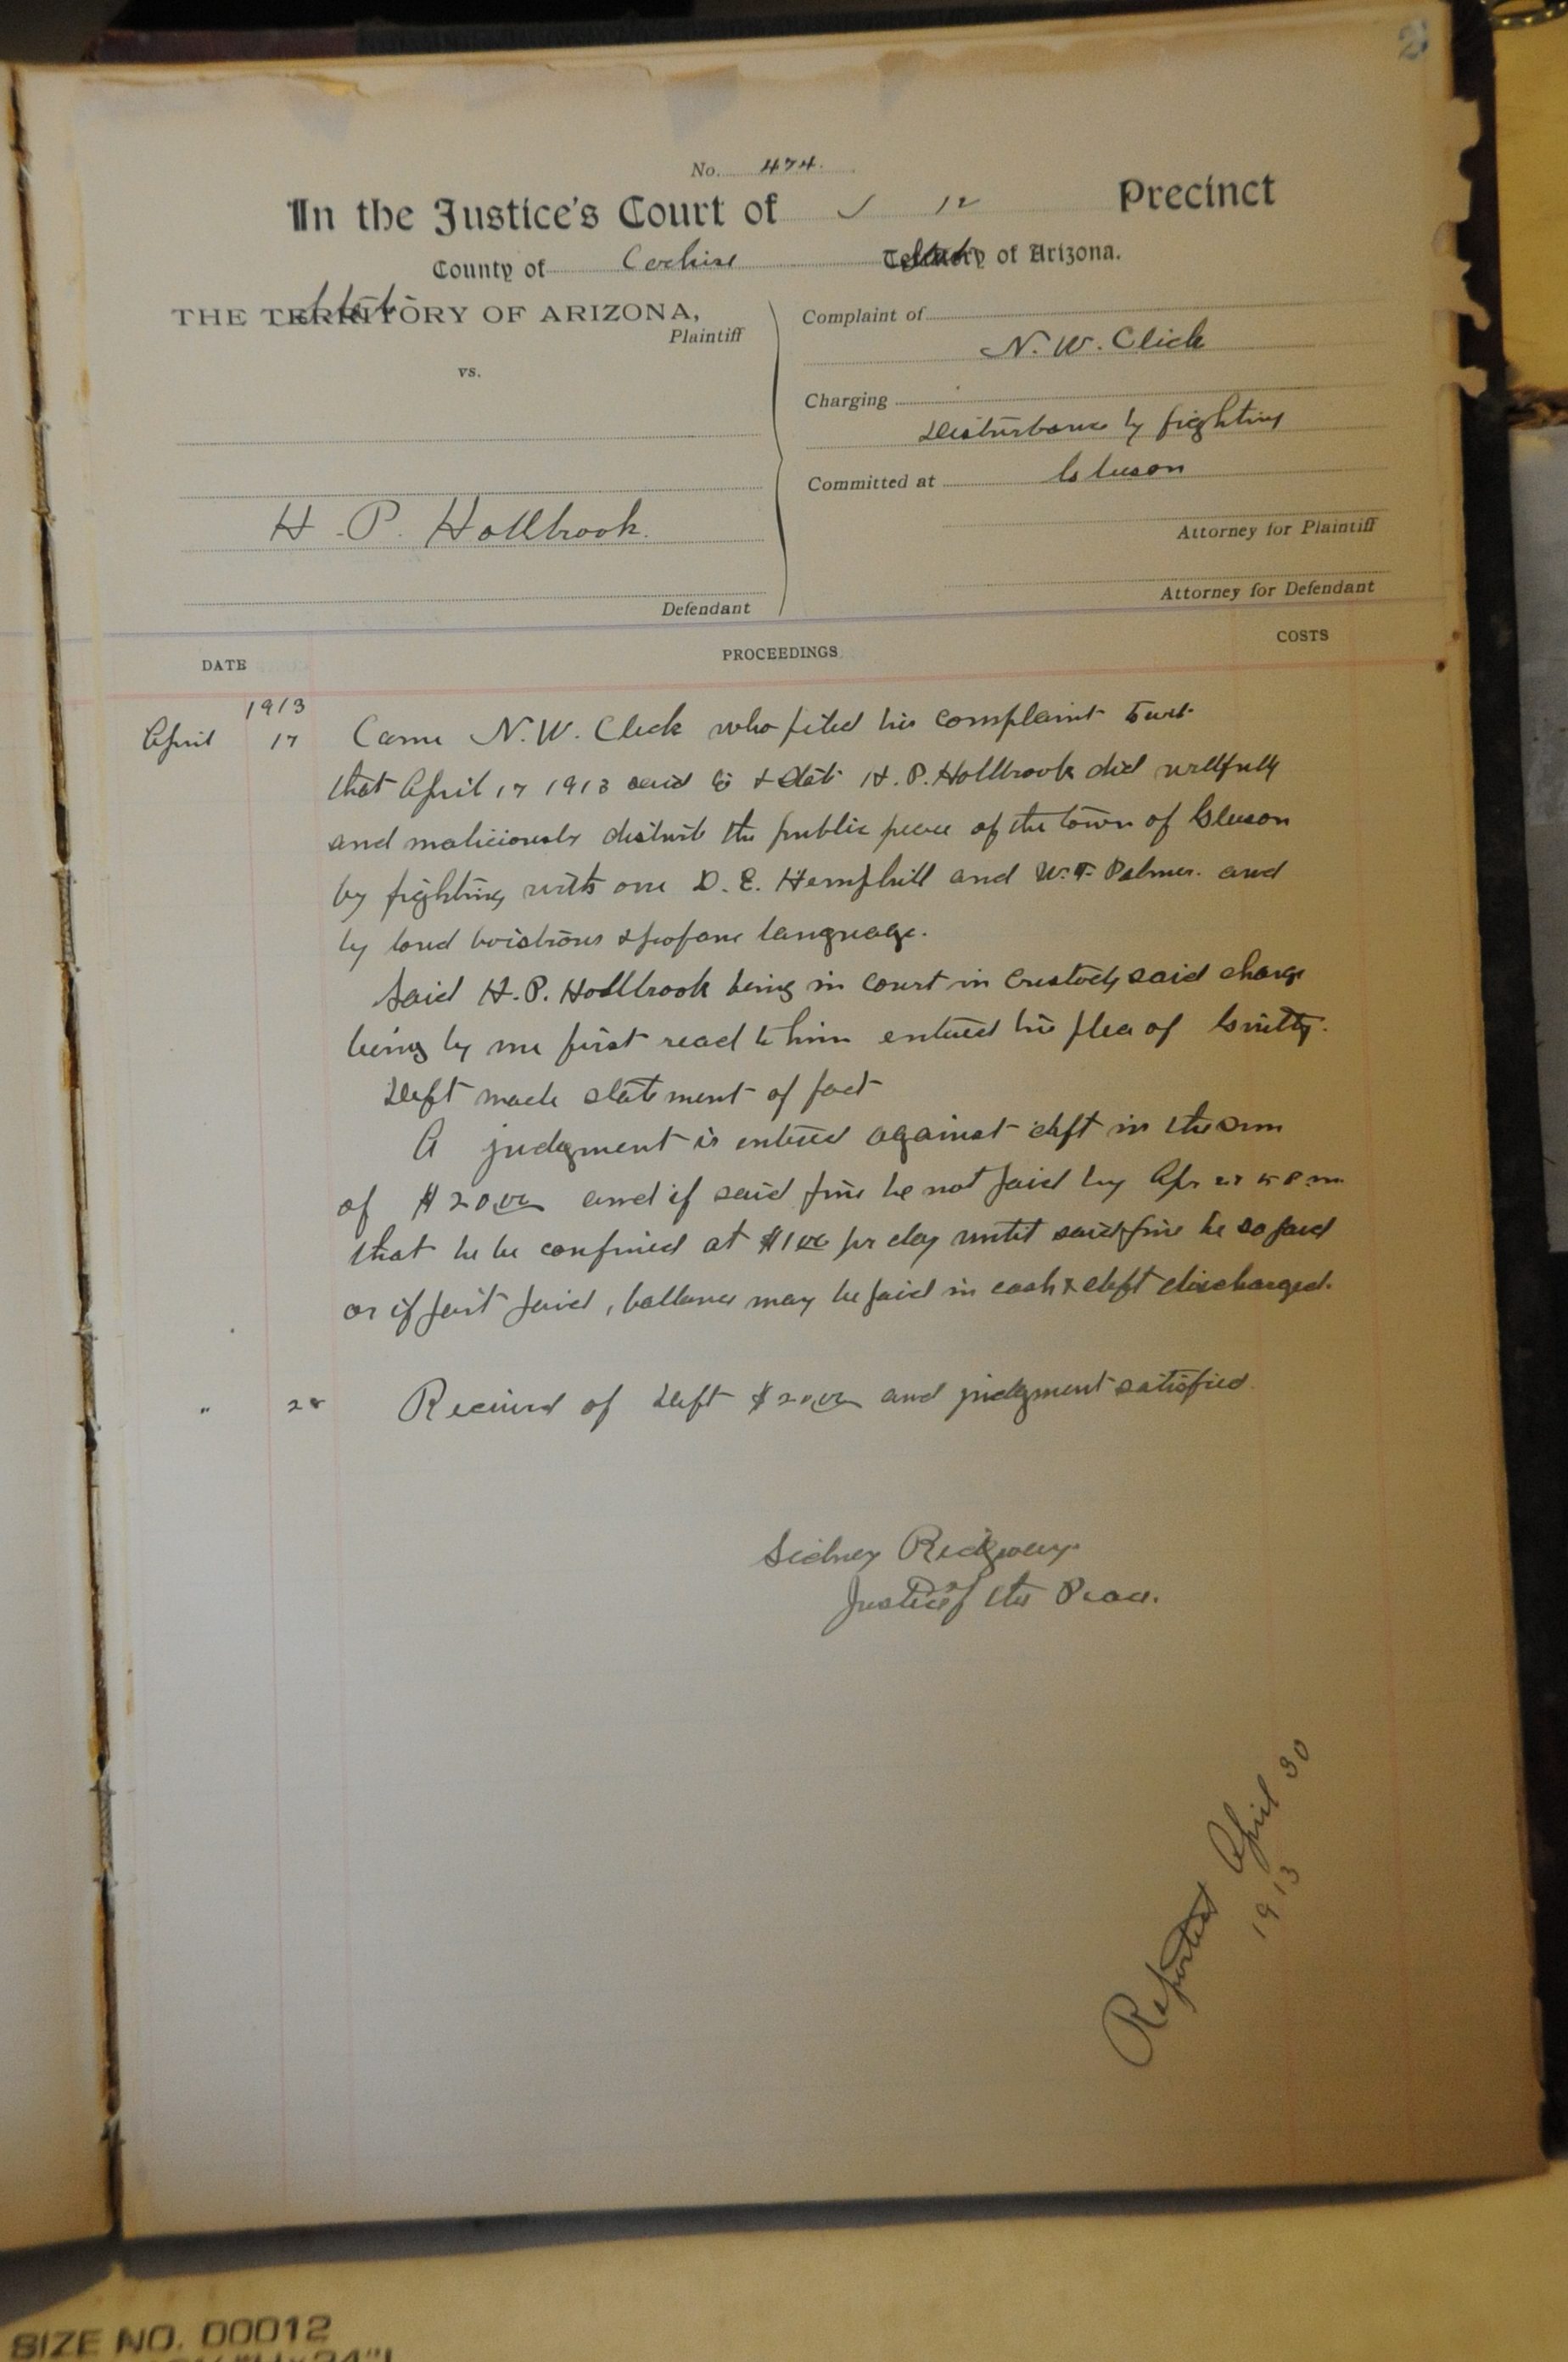 2
No. 474.
In the Justice's Court of 12 Precinct
County of Cochise State of Arizona.
THE TERRITORY OF ARIZONA,
State
Plaintiff
vs.
H. P. Hollbrook.
Defendant
Complaint of
N. W. Click
Charging
Disturbance by fighting
Committed at Gleeson
Attorney for Plaintiff
Attorney for Defendant
DATE PROCEEDINGS COSTS
1913
April 17 Came N. W. Click who filed his complaint towit
that April 17 1913 said Co & State H. P. Hollbrook did willfully
and maliciously disturb the public peace of the town of Gleeson
by fighting with one D. E. Hemphill and W. T. Palmer. and
by loud boistrous & profane language.
Said H. P. Hollbrook being in court in custody said charge
being by me first read to him entered his plea of Guilty.
Deft made statement of fact
A judgment is entered against deft in the sum
of $20.00 and if said fine be not paid by Apr 5 P.m.
that he be confined at $1.00 pr day until said fine be so paid
or if part paid, ballance may be paid in cash & deft discharged.
" 28 Received of Deft $20.00 and judgment satisfied.
Sidney Ridgway
Justice of the Peace.
Reported April 30
1913
SIZE NO. 00012